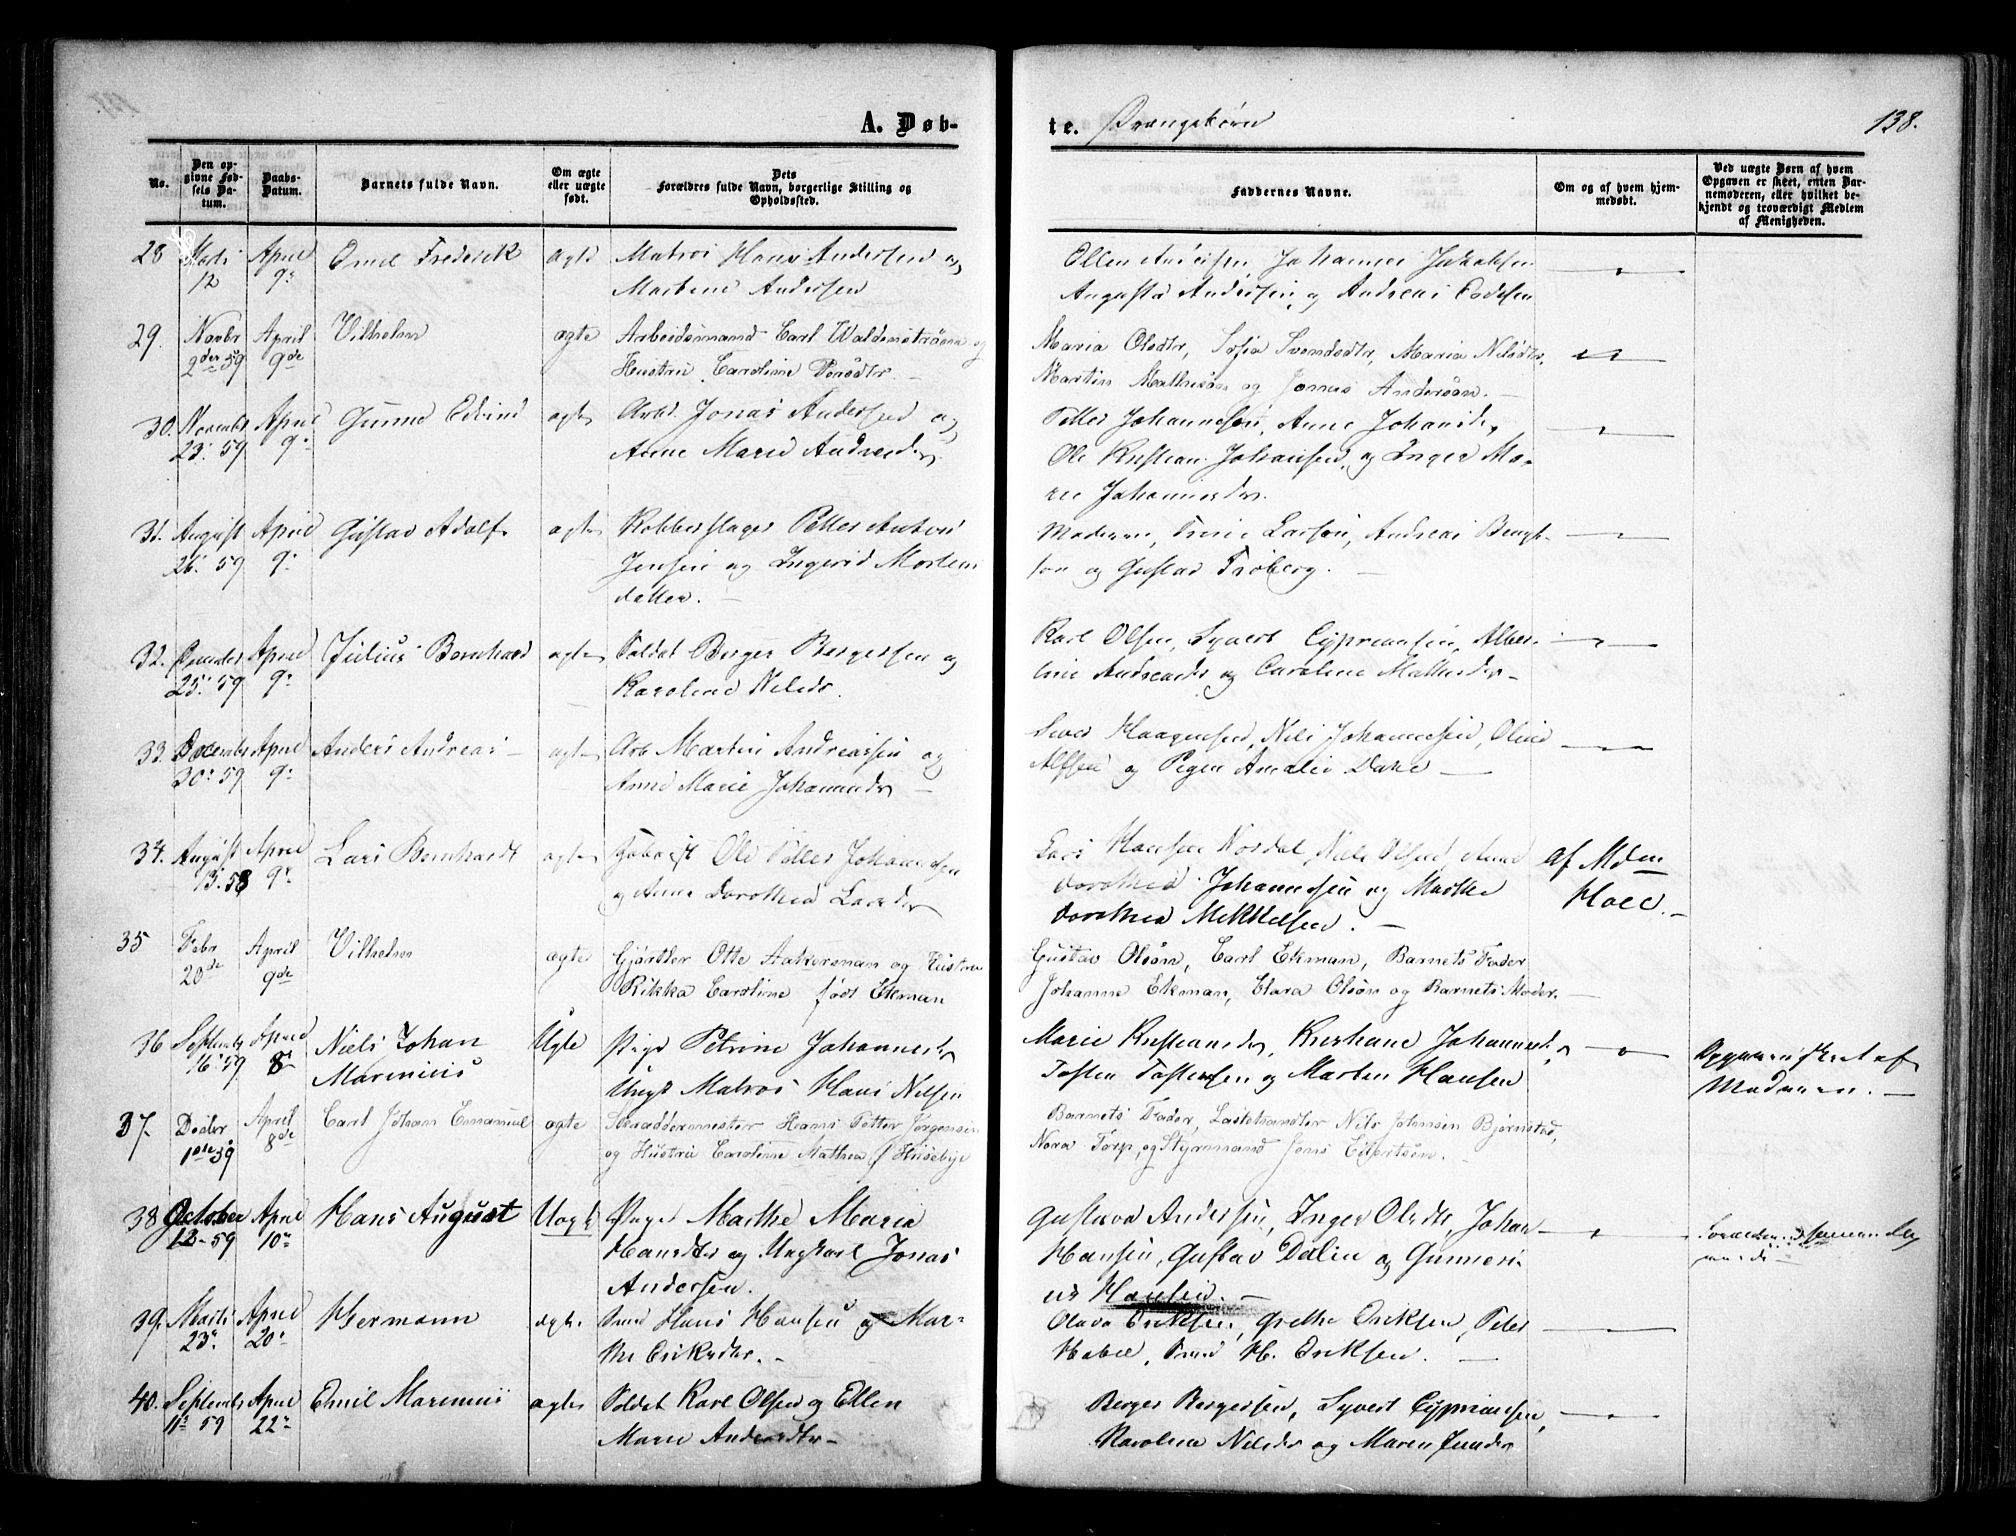 A. Døb-
te. Drængebørn
138.
No.
Den op-
givne Fød-
sels Da-
tum.
Daabs-
Datum.
Barnets fulde Navn.
Om ægte
eller uægte
født.
Dets
Forældres fulde Navn, borgerlige Stilling og
Opholdssted.
Faddernes Navne.
Om og af hvem hjem-
medøbt.
Ved uægte Børn af hvem
Opgaven er skeet, enten Bar-
nemoderen, eller hvilket be-
kjendt og troværdigt Medlem
af Menigheden.
28 Marts April Emil Frederik ægte Matros Hans Andersen og
12 9de Martine Andersen
Ellen Andersen, Johannes Jakobsen
Augusta Andersen, og Andreas
29. Novbr April Vilhelm ægte Arbeidsmand Carl Waldemstrøm og
2den 59 9de Hustru Caroline Persdtr. -
Maria Olsdtr, Sofia Svendsdtr, Maria Nilsdtr,
Martin Mathison og Jonas Anderson. -
30. Novembr April Gunne Edvind ægte Arbd. Jonas Andersen og
23. 59 9. Anne Marie Andreasdtr.
Petter Johannesen, Anne Johansdtr,
Ole Kristian Johansen, og Inger Ma-
rie Johannesdtr.
31. August April Gustav Adolf ægte Kobberslager Petter Anton
26. 59 9. Jensen og Ingerid Mortens
datter. -
Moderen, Larsen, Andreas Bengt-
son og Gustav Froberg. -
32. April Julius Bernhard ægte Soldat Berger Bergersen og
25. 59 9. Karoline Nilsdr.
Karl Olsen, Syvert Cypriansen, Alber-
tine Andreasdr og Caroline Mathisdr -
33. Decembr April Anders Andreas - ægte Arb Martin Andreassen og
30. 59 9. Anne Marie Johannesdr -
Haagensen, Nils Johannesen, Oline
Alfsen og Pigen Amalie -
34. August April Lars Bernhardt ægte Ole Petter Johannesen
13. 58 9. og Anne Dorothea Larsdr
Lars Hansen Nordal, Niels Olsen, Anne
Dorothea Johannesen og Marthe
Dorothea Mikkelsen. -
af Mdm
Holl. -
35 Febr April Vilhelm ægte Gjørtler Otte Aakersman og Hustru
20de 9de Rikka Caroline født Ekman
Gustav Olson, Carl Ekman, Barnets Fader
Johanne Ekman, Clara Olson og Barnets Moder. -
36 Septembr April Niels Johan Uægte Pige Petrine Johannesdr
16. 59 8 Marenius Ungk Matros Hans Nilsen
Marie Kristiansdr, Kristiane Johannesdr,
Tosten Tostensen og Marten Hansen
Opgaven skeet af
Moderen. -
37. Decbr April Carl Johan Emanuel ægte Skræddermester Hans Petter Jørgensen
1ste 59 8de og Hustru Caroline Mathea f Huseby
Barnets Fader, Lasthandler Nils Johnsen Bjørnstad,
Nora Torp, og Styrmand Jens Eilertsen. -
38 October April Hans August Uægt Pige Marthe Maria
12 - 59 10de Hansdtr og Ungkarl Jonas
Andersen.
Gustava Andersen, Inger Olsdtr, Johan
Hansen, Gustav Dalin og Gunneri-
us Hansen. -
39. Marts April Hermann ægte Hans Hansen og Mar-
23. 20. the Eriksdtr. -
Olava Eriksen, Grethe Eriksen, Peter
H. Eriksen. -
40. Septembr April Emil Marenius ægte Soldat Karl Olsen og Ellen
11. 59 22. Marie Andersdtr -
Berger Bergersen, Syvert Cypriansen,
Karoline Nilsdr og Maren Jensdr